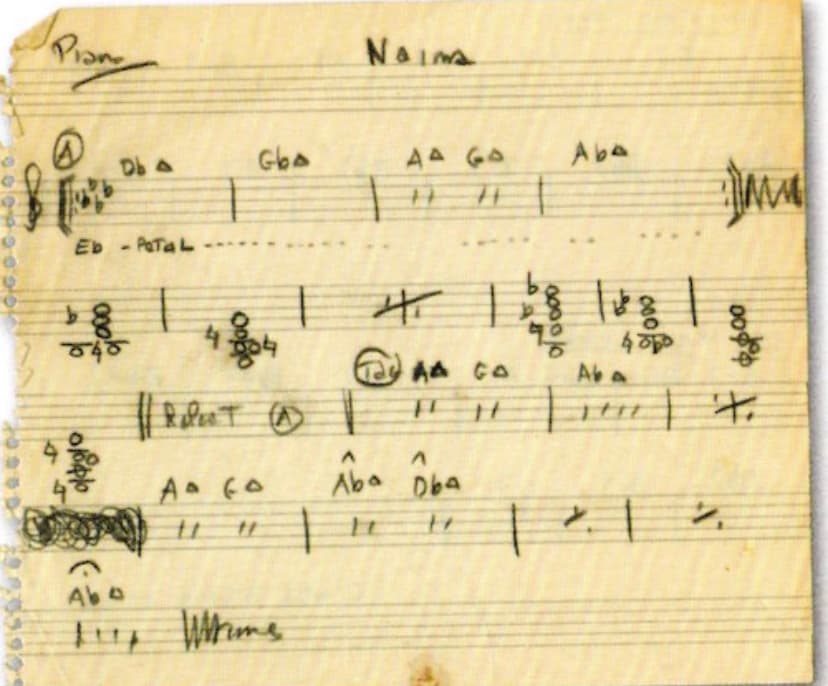 Piano Naima
A Db△ Gb△ A△ G△ Ab△
Eb - PEDAL
Tag A△ G△ Ab△
Repeat A
A△ G△ Ab△ Db△
Ab△